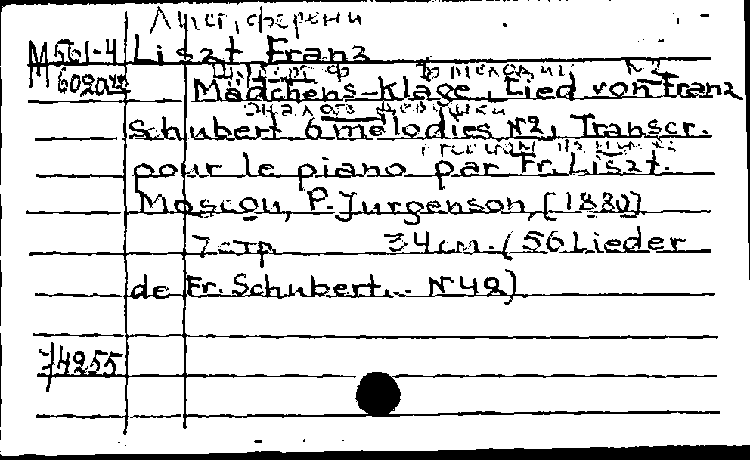 Лист, ференц
М 561-4 Liszt Franz
6020
Mädchens-Klage, Lied von Franz
Жалоба девушки
Schubert 6 melodies №2, Transcr.
pour le piano par Fr. Liszt.
Moscou, P. Jurgenson, [1880]
7 стр. 34 см. (56 Lieder
de Fr. Schubert... №42)
74255